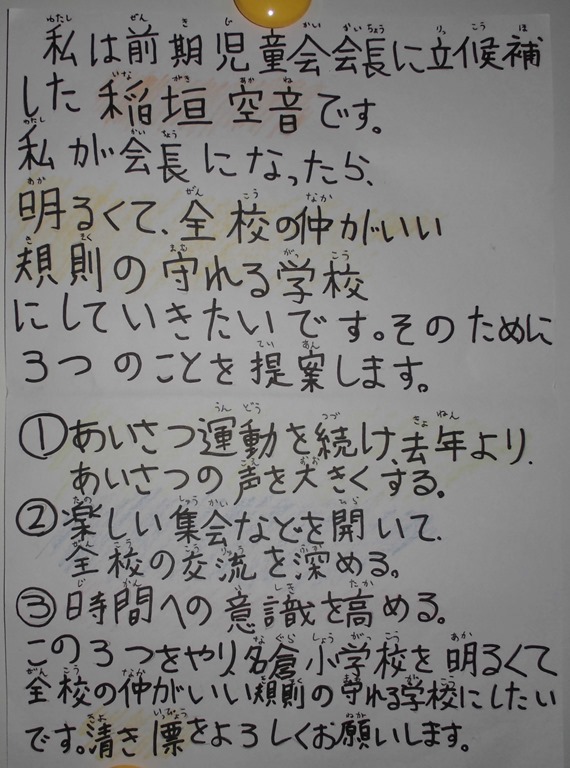 私は前期児童会会長に立候補
した稲垣空音です。
私が会長になったら、
明るくて、全校の仲がいい
規則の守れる学校
にしていきたいです。そのために
3つのことを提案します。
①あいさつ運動を続け、去年より、
あいさつの声を大きくする。
②楽しい集会などを開いて、
全校の交流を深める。
③時間への意識を高める。
この3つをやり、名倉小学校を明るくて
全校の仲がいい規則の守れる学校にしたい
です。清き票をよろしくお願いします。